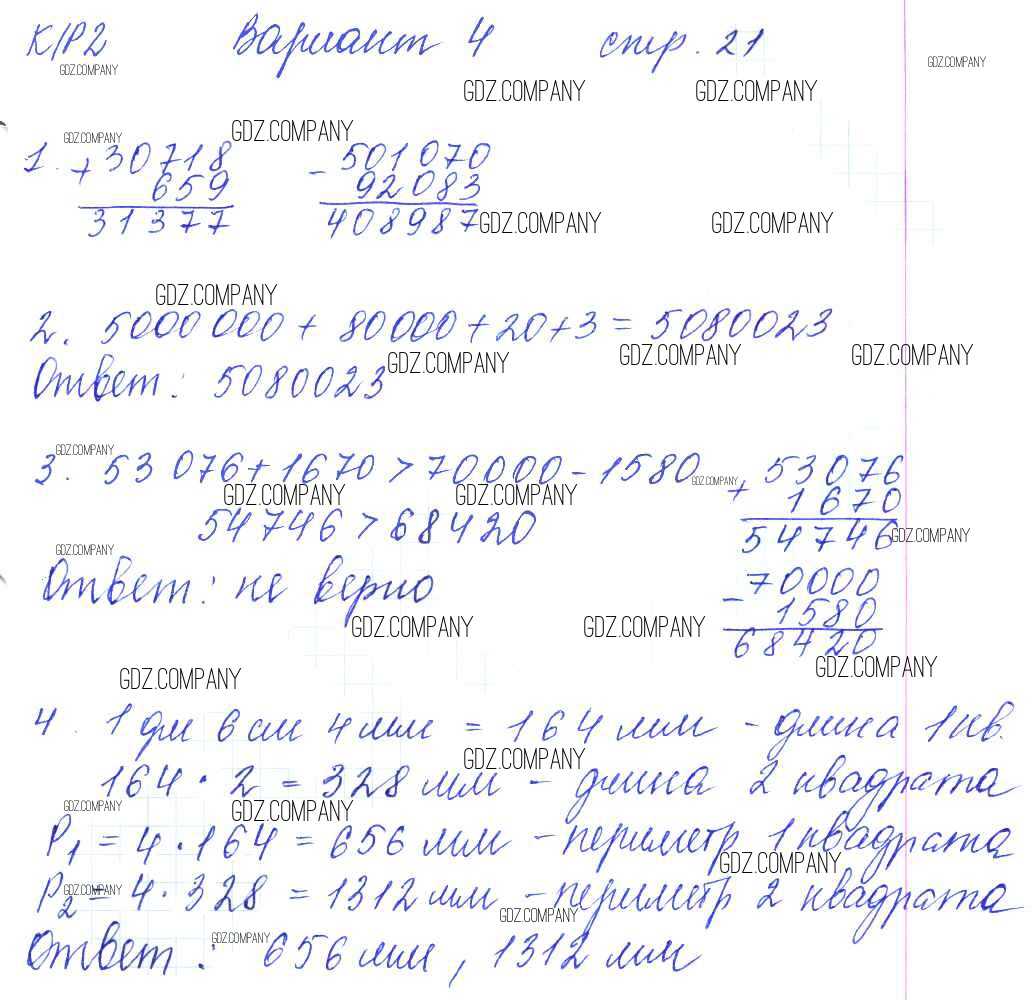 К/Р2 Вариант 4 стр. 21
GDZ.COMPANY GDZ.COMPANY
GDZ.COMPANY GDZ.COMPANY
GDZ.COMPANY GDZ.COMPANY
1. + 30718 - 501070
659 92083
31377 408987 GDZ.COMPANY GDZ.COMPANY
GDZ.COMPANY
2. 5000 000 + 80000 + 20 + 3 = 5080023
GDZ.COMPANY GDZ.COMPANY GDZ.COMPANY
Ответ: 5080023
GDZ.COMPANY
3. 53 076 + 1670 > 70000 - 1580 GDZ.COMPANY + 53076
GDZ.COMPANY GDZ.COMPANY 1670
54746 > 68420 54746 GDZ.COMPANY
GDZ.COMPANY
Ответ: не верно - 70000
1580
GDZ.COMPANY GDZ.COMPANY
68420
GDZ.COMPANY GDZ.COMPANY
4. 1 дм 6 см 4 мм = 164 мм - длина 1 кв.
GDZ.COMPANY
164 · 2 = 328 мм - длина 2 квадрата
GDZ.COMPANY GDZ.COMPANY
P1 = 4 · 164 = 656 мм - периметр 1 квадрата
GDZ.COMPANY
P2 = 4 · 328 = 1312 мм - периметр 2 квадрата
GDZ.COMPANY GDZ.COMPANY
Ответ: GDZ.COMPANY 656 мм, 1312 мм